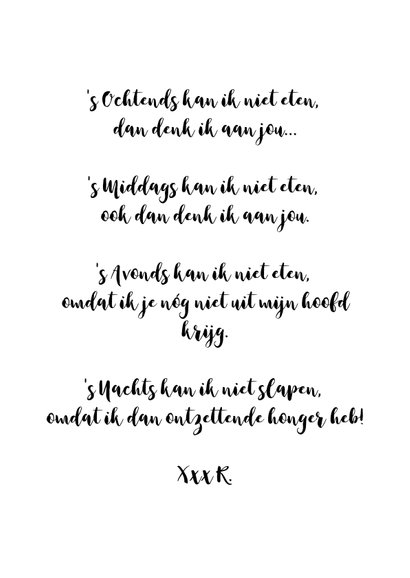 's Ochtends kan ik niet eten,
dan denk ik aan jou...
's Middags kan ik niet eten,
ook dan denk ik aan jou.
's Avonds kan ik niet eten,
omdat ik je nóg niet uit mijn hoofd
krijg.
's Nachts kan ik niet slapen,
omdat ik dan ontzettende honger heb!
Xxx R.